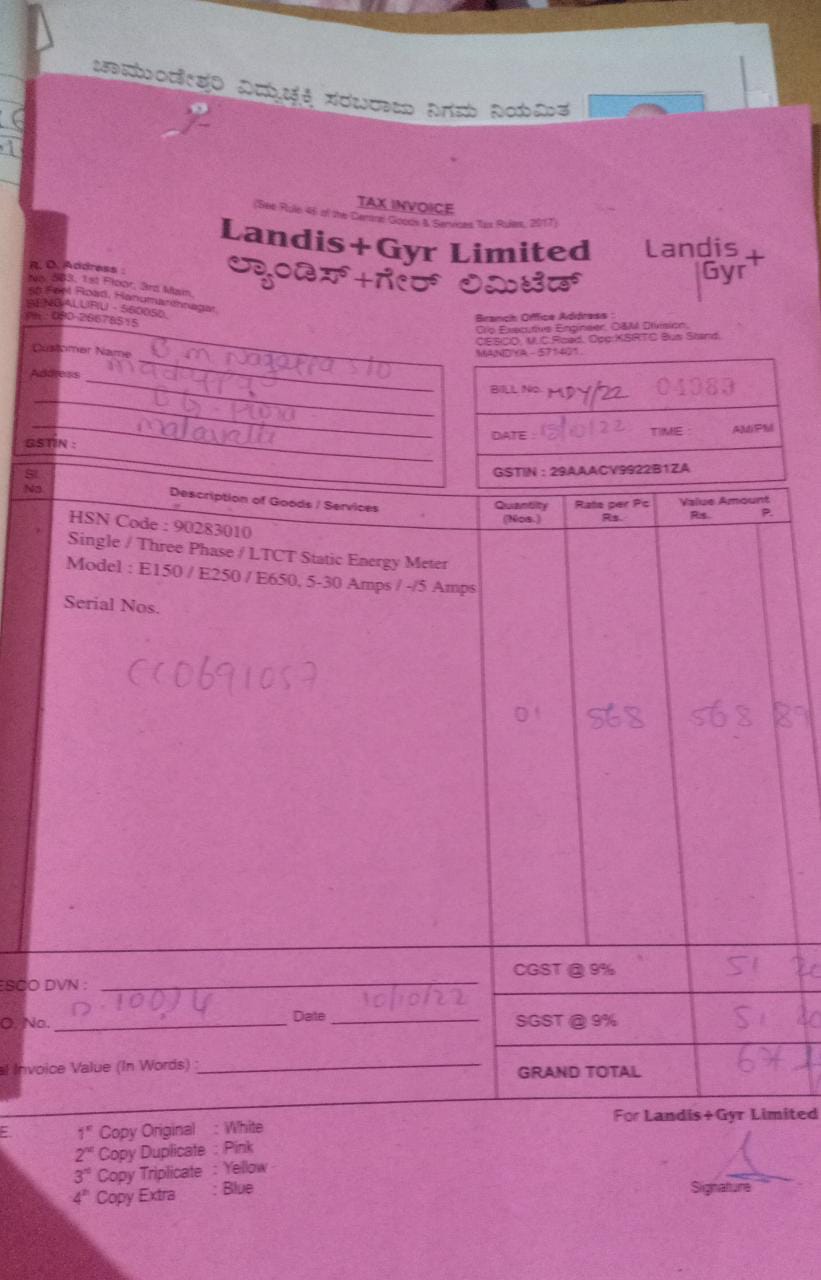 ಚಾಮುಂಡೇಶ್ವರಿ ವಿದ್ಯುಚ್ಛಕ್ತಿ ಸರಬರಾಜು ನಿಗಮ ನಿಯಮಿತ
TAX INVOICE
(See Rule 46 of the Central Goods & Services Tax Rules, 2017)
Landis+Gyr Limited
ಲ್ಯಾಂಡಿಸ್+ಗೇರ್ ಲಿಮಿಟೆಡ್
Landis
Gyr+
R. O. Address :
No. 503, 1st Floor, 3rd Main,
50 Feet Road, Hanumanthnagar,
BENGALURU - 560050.
Ph : 080-26678515
Branch Office Address :
C/o Executive Engineer, O&M Division,
CESCO, M.C.Road, Opp:KSRTC Bus Stand,
MANDYA - 571401.
Customer Name B. M Nagappa S/o
Address
Malavalli
GSTIN :
BILL No. MDY/22 04383
DATE : 13/10/22 TIME : AM/PM
GSTIN : 29AAACV9922B1ZA
Sl. No. Description of Goods / Services Quantity (Nos.) Rate per Pc Rs. Value Amount Rs. P.
HSN Code : 90283010
Single / Three Phase / LTCT Static Energy Meter
Model : E150 / E250 / E650, 5-30 Amps / -/5 Amps
Serial Nos.
CC0691057
01 568 568 89
CGST @ 9% 51 20
SGST @ 9% 51 20
GRAND TOTAL
ESCO DVN :
O. No. Date 10/10/22
al Invoice Value (In Words) :
For Landis+Gyr Limited
E. 1st Copy Original : White
2nd Copy Duplicate : Pink
3rd Copy Triplicate : Yellow
4th Copy Extra : Blue
Signature